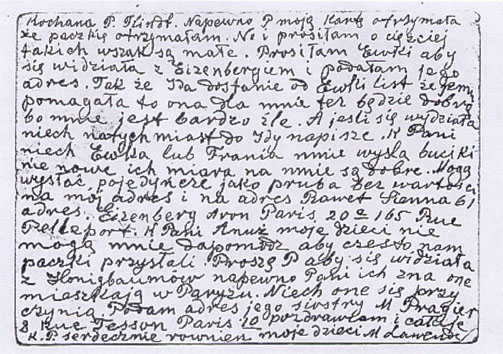 Kochana P. Flindl. Napewno P moją Kartę otrzymała
że paczkę otrzymałam. No i prosiłam o częściej
takich wszak są małe. Prosiłam Ewki aby
się widziała z Eizenbergiem i podałam jego
adres. Tak że Ida dostanie od Ewki list że jem
pomagała to ona dla mnie też będzie dobra
bo mnie jest bardzo źle. A jeśli się widziała
niech natychmiast do Idy napisze. K Pani
niech Ewka lub Frania mnie wyśla buciki
nie nowe ich miara na mnie są dobre. Mogą
wysłać pojedyńcze jako pruba bez wartości
na mój adres i na adres Paweł Sienna 61
adres. Eizenberg Aron Paris 20e 165 Rue
Pelleport. K Pani Anuż moje dzieci nie
mogą mnie dapomódz aby często nam
paczki przysłali Proszę P aby się widziała
z Honigbaumów napewno Pani ich zna one
mieszkają w Paryżu. Niech one się przy
czynią Podam adres jego siostry M Pragier
8 Rue Tesson Paris 10 pozdrawiam i całuję
K.P. serdecznie rownien moje dzieci M